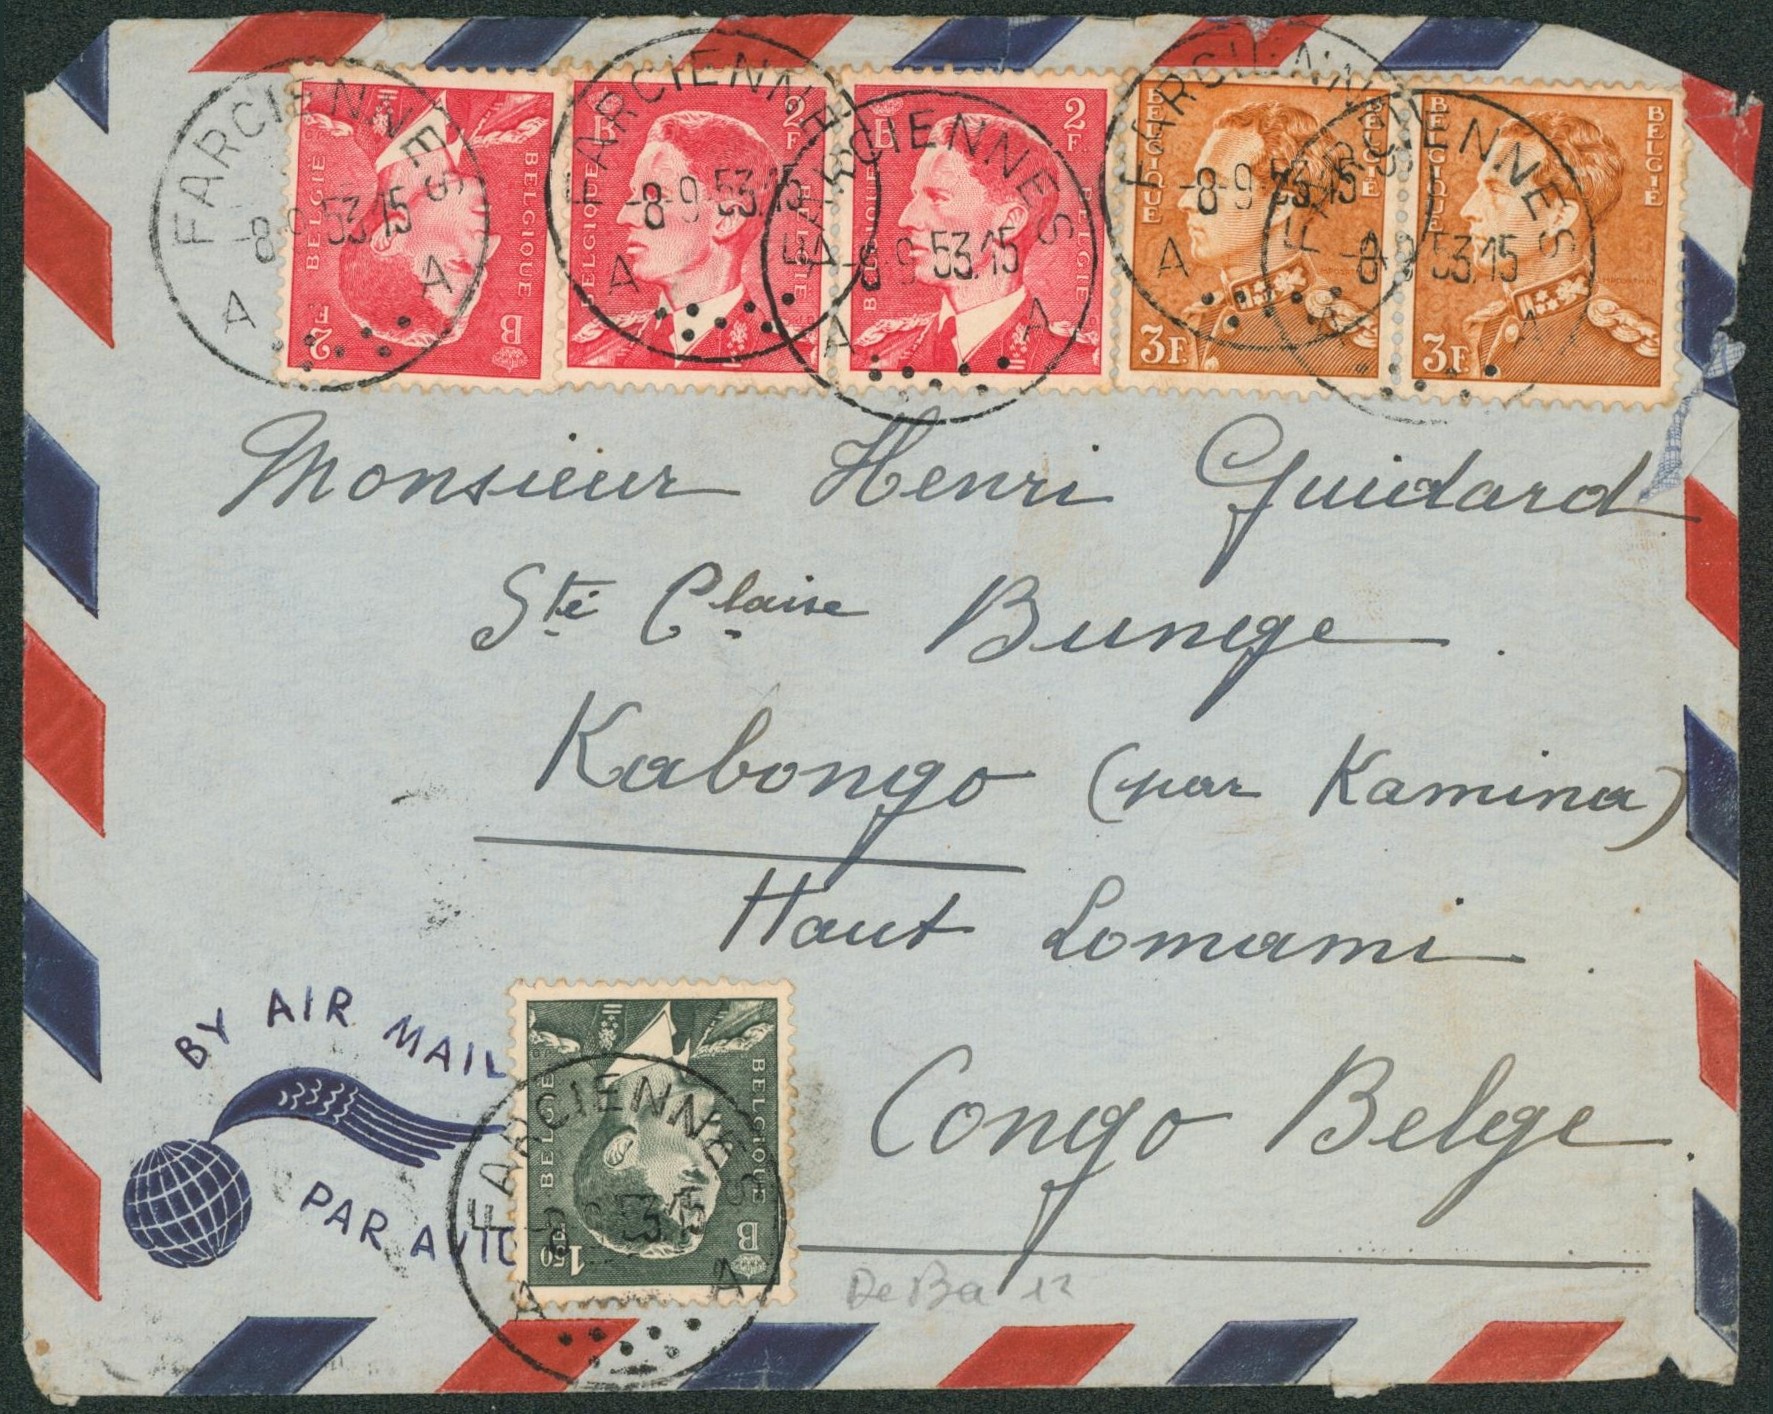 FARCIENNES FARCIENNES FARCIENNES FARCIENNES FARCIENNES
-8-9 53.15 -8-9 53.15 -8-9 53.15 -8-9 53.15 -8-9 53.15
A A A A A A A
BELGIË BELGIQUE B 2F
BELGIQUE BELGIË B 2F.
BELGIQUE BELGIË B 2F.
BELGIQUE BELGIË 3F.
BELGIQUE BELGIË 3F.
Monsieur Henri Guidard
Sté Claise Bunge.
Kabongo (par Kamina)
Haut Lomami.
Congo Belge.
BY AIR MAIL
PAR AVIO
BELGIË BELGIQUE B 1F50
FARCIENNES
-8-9 53.15
A A